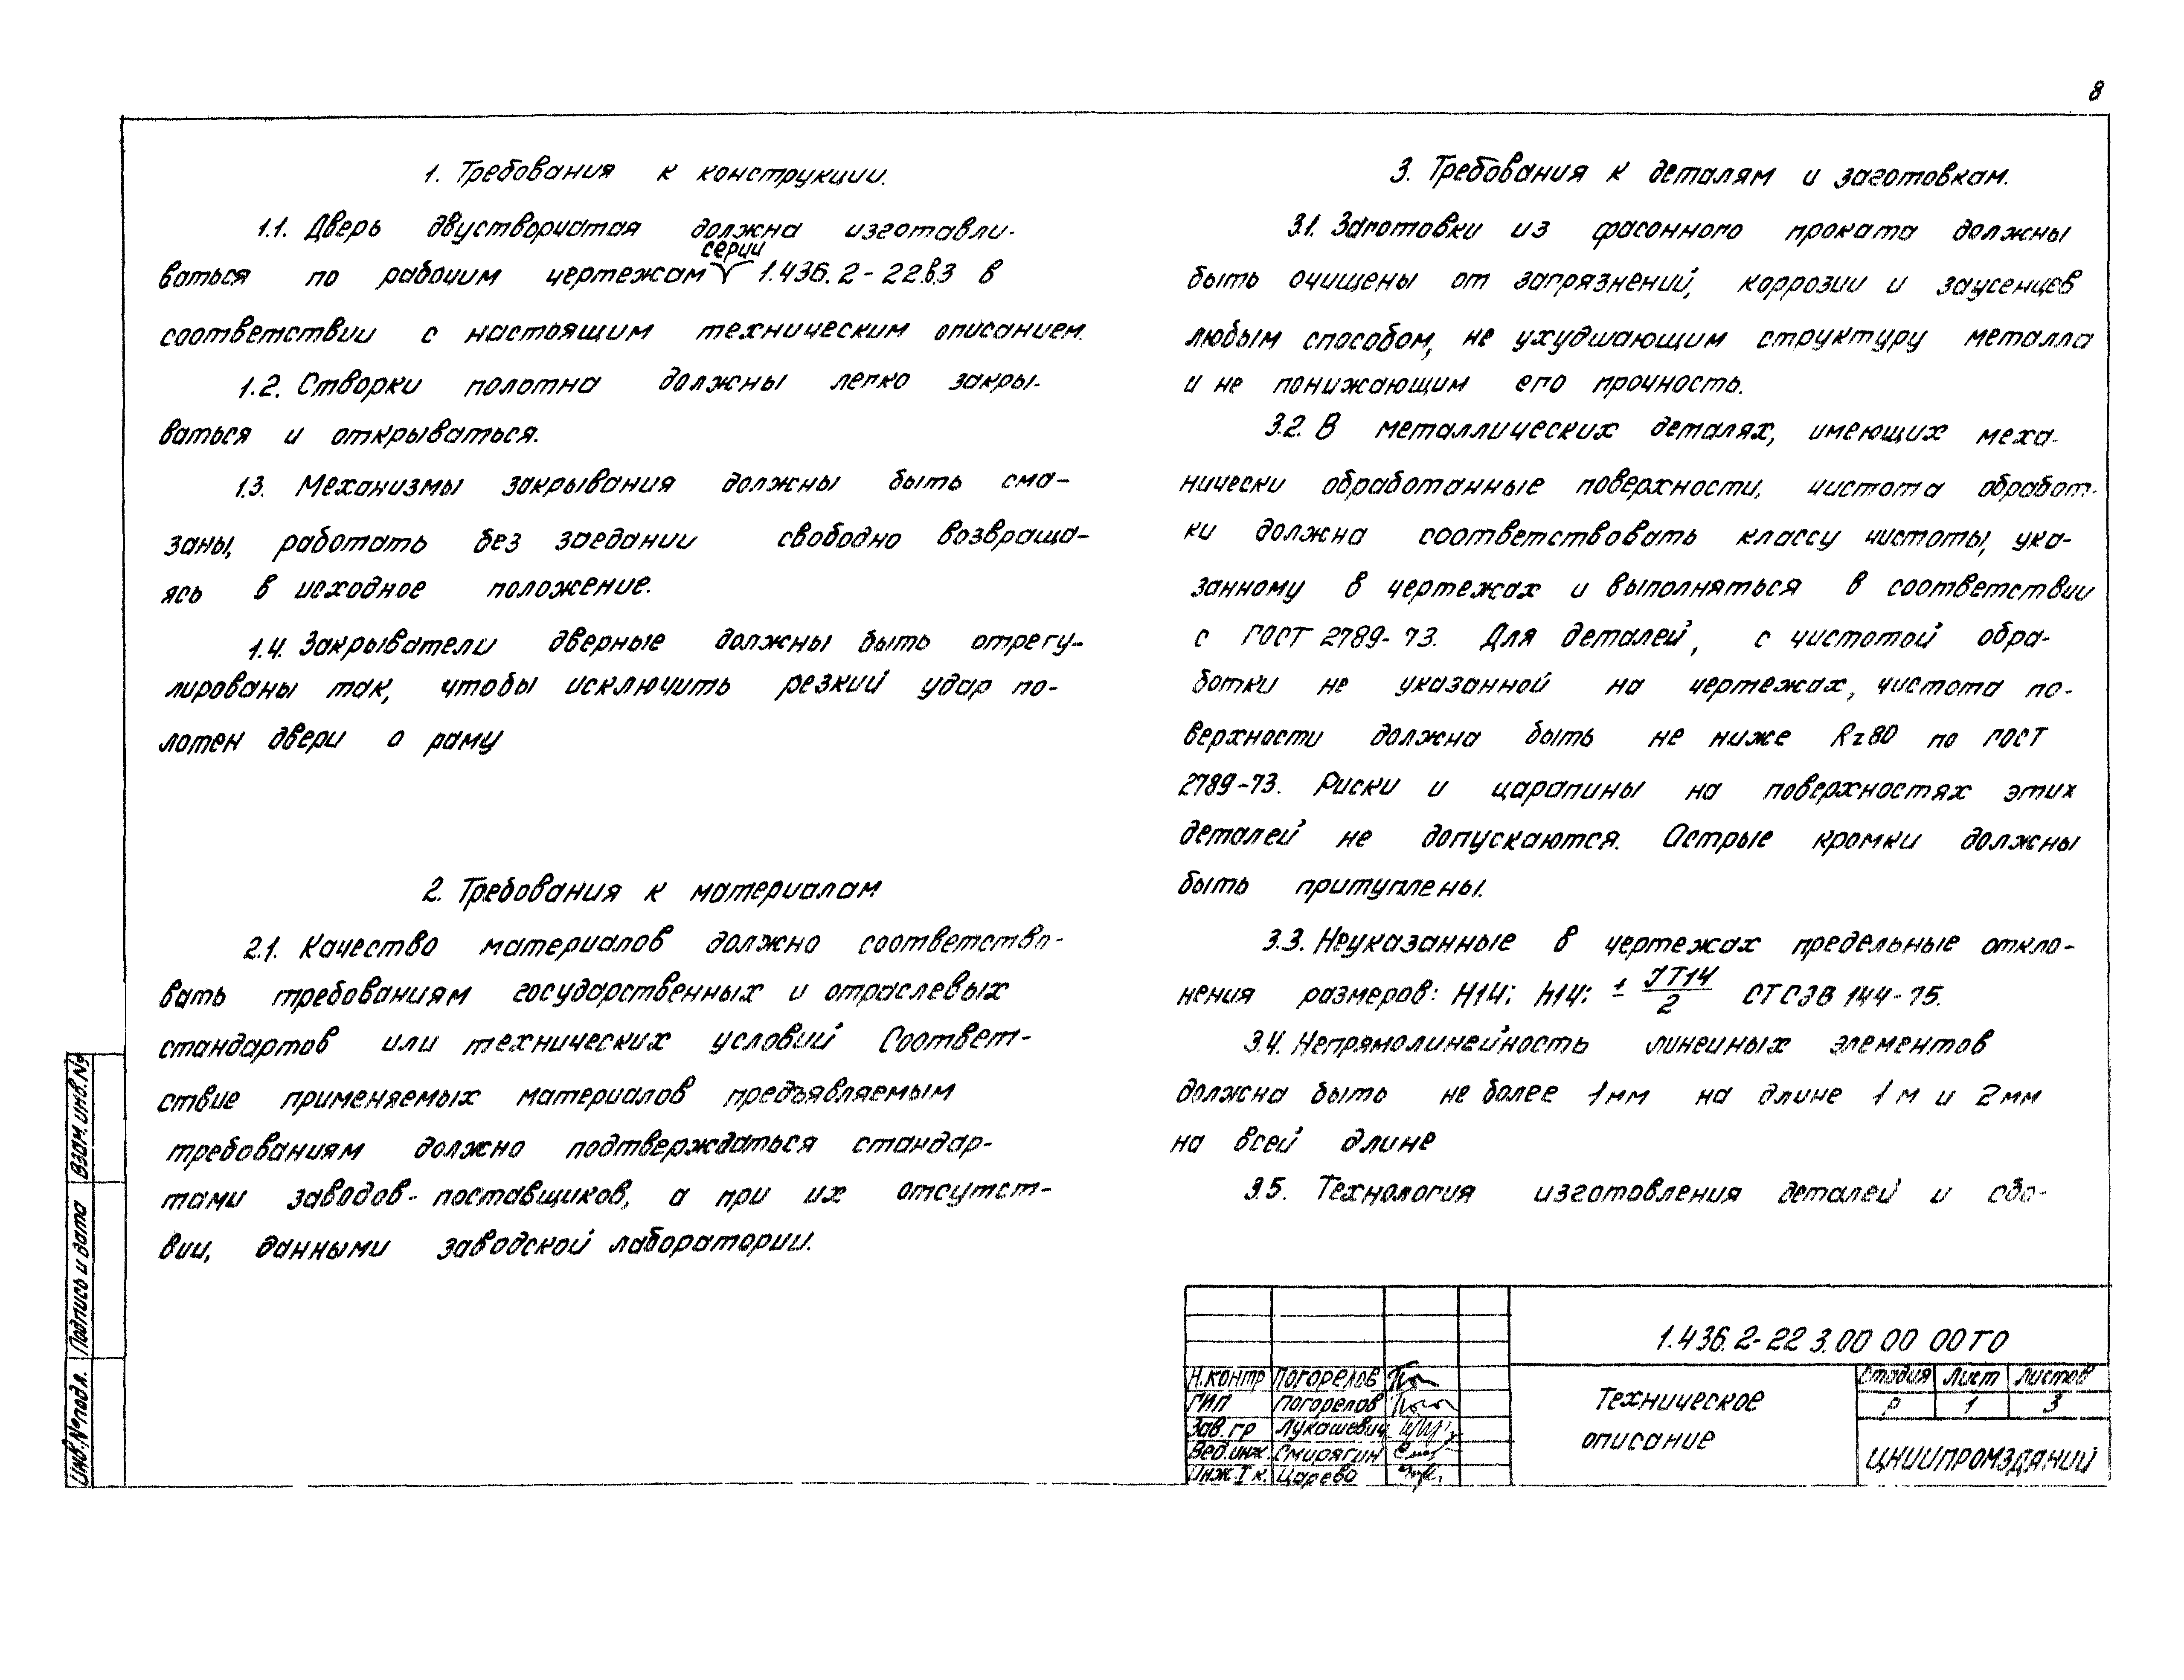 8
1. Требования к конструкции.
1.1. Дверь двустворчатая должна изготавли-
серии
ваться по рабочим чертежам 1.436.2-22.в.3 в
соответствии с настоящим техническим описанием.
1.2. Створки полотна должны легко закры-
ваться и открываться.
1.3. Механизмы закрывания должны быть сма-
заны, работать без заедании свободно возвраща-
ясь в исходное положение.
1.4. Закрыватели дверные должны быть отрегу-
лированы так, чтобы исключить резкий удар по-
лотен двери о раму
2. Требования к материалам
2.1. Качество материалов должно соответство-
вать требованиям государственных и отраслевых
стандартов или технических условий Соответ-
ствие применяемых материалов предъявляемым
требованиям должно подтверждаться стандар-
тами заводов-поставщиков, а при их отсутст-
вии, данными заводской лаборатории.
3. Требования к деталям и заготовкам.
3.1. Заготовки из фасонного проката должны
быть очищены от загрязнений, коррозии и заусенцев
любым способом, не ухудшающим структуру металла
и не понижающим его прочность.
3.2. В металлических деталях, имеющих меха-
нически обработанные поверхности, чистота обработ-
ки должна соответствовать классу чистоты, ука-
занному в чертежах и выполняться в соответствии
с ГОСТ 2789-73. Для деталей, с чистотой обра-
ботки не указанной на чертежах, чистота по-
верхности должна быть не ниже Rz80 по ГОСТ
2789-73. Риски и царапины на поверхностях этих
деталей не допускаются. Острые кромки должны
быть притуплены.
3.3. Неуказанные в чертежах предельные откло-
нения размеров: H14; h14; ± JT14/2 СТСЭВ 144-75.
3.4. Непрямолинейность линеиных элементов
должна быть не более 1мм на длине 1м и 2мм
на всей длине
3.5. Технология изготовления деталей и сбо-
1.436.2-22 3.00 00 00ТО
Н.контр Погорелов
ГИП Погорелов
Зав.гр Лукашевич
Вед.инж Смирягин
Инж.I к. Царева
Техническое
описание
Стадия Лист Листов
Р 1 3
ЦНИИПРОМЗДАНИЙ
Взам.инв.№
Подпись и дата
Инв.№подл.